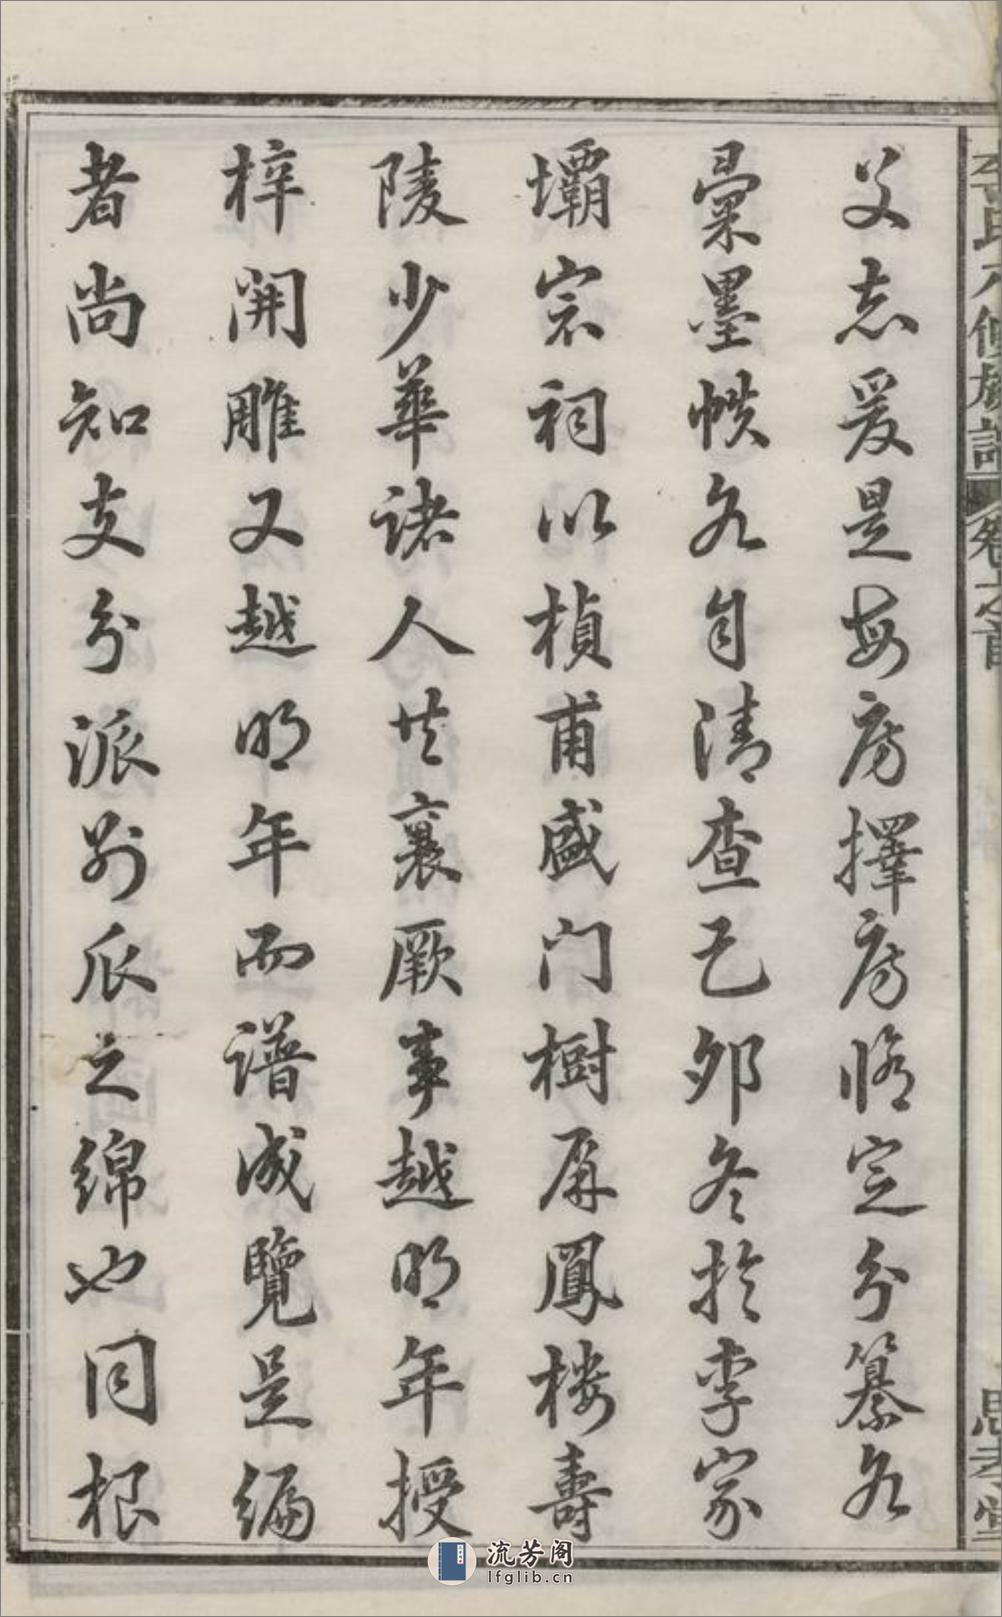 李氏八修族譜 卷之首 思孝堂
父志爰是每房擇房脩定分纂各
彙墨帙各自清查己卯冬於李家
壩宗祠以楨甫盛门樹屏鳳楼壽
陵少華諸人共襄厥事越明年授
梓開雕又越明年而譜成覽是編
者尚知支分派别瓜之綿也同根
流芳阁
lfglib.cn